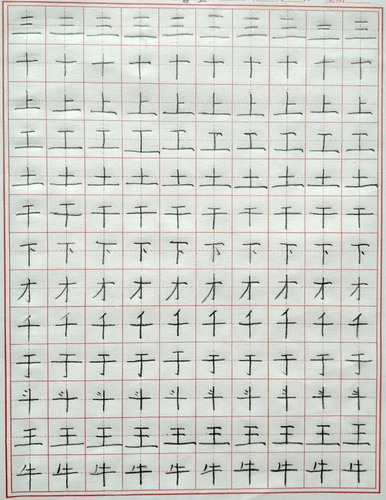 三三三三三三三三三三
十十十十十十十十十十
上上上上上上上上上上
工工工工工工工工工工
土土土土土土土土土土
干干干干干干干干干干
下下下下下下下下下下
才才才才才才才才才才
千千千千千千千千千千
于于于于于于于于于于
斗斗斗斗斗斗斗斗斗斗
王王王王王王王王王王
牛牛牛牛牛牛牛牛牛牛